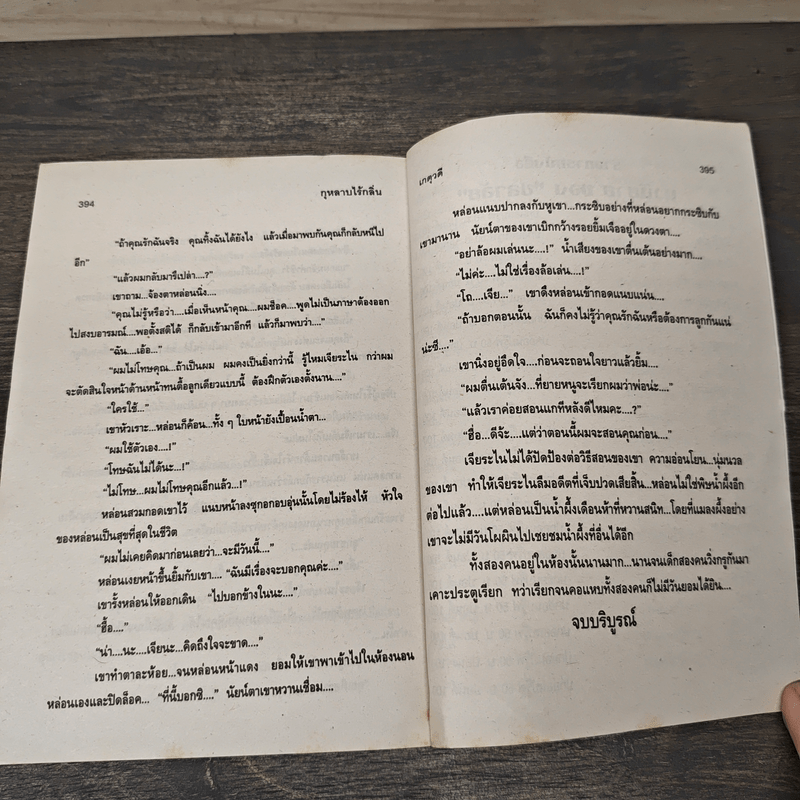 394
กุหลาบไร้กลิ่น
“ถ้าคุณรักฉันจริง คุณทิ้งฉันได้ยังไง แล้วเมื่อมาพบกันคุณก็กลับหนีไป
อีก”
“แล้วผมกลับมารึเปล่า....?”
เขาถาม...จ้องตาหล่อนนิ่ง....
“คุณไม่รู้หรือว่า....เมื่อเห็นหน้าคุณ....ผมช็อค....พูดไม่เป็นภาษาต้องออก
ไปสงบอารมณ์....พอตั้งสติได้ ก็กลับเข้ามาอีกที แล้วก็มาพบว่า....”
“ฉัน....เอ้อ...”
“ผมไม่โทษคุณ...ถ้าเป็นผม ผมคงเป็นยิ่งกว่านี้ รู้ไหมเจียระไน กว่าผม
จะตัดสินใจหน้าด้านหน้าทนตื้อลูกเดียวแบบนี้ ต้องฝึกตัวเองตั้งนาน....”
“ใครใช้...”
เขาหัวเราะ...หล่อนก็ค้อน...ทั้ง ๆ ใบหน้ายังเปื้อนน้ำตา...
“ผมใช้ตัวเอง....!”
“โทษฉันไม่ได้นะ...!”
“ไม่โทษ...ผมไม่โทษคุณอีกแล้ว...!”
หล่อนสวมกอดเขาไว้ แนบหน้าลงซุกอกอบอุ่นนั้นโดยไม่ร้องไห้ หัวใจ
ของหล่อนเป็นสุขที่สุดในชีวิต
“ผมไม่เคยคิดมาก่อนเลยว่า...จะมีวันนี้....”
หล่อนเงยหน้าขึ้นยิ้มกับเขา.... “ฉันมีเรื่องจะบอกคุณค่ะ....”
เขารั้งหล่อนให้ออกเดิน “ไปบอกข้างในนะ....”
“อื้อ....”
“น่า....นะ....เจียนะ...คิดถึงใจจะขาด....”
เขาทำตาละห้อย...จนหล่อนหน้าแดง ยอมให้เขาพาเข้าไปในห้องนอน
หล่อนเองและปิดล็อค... “ที่นี้บอกซิ....” นัยน์ตาเขาหวานเชื่อม....
เกตุวดี
395
หล่อนแนบปากลงกับหูเขา...กระซิบอย่างที่หล่อนอยากกระซิบกับ
เขามานาน นัยน์ตาของเขาเบิกกว้างรอยยิ้มเจืออยู่ในดวงตา....
“อย่าล้อผมเล่นนะ....!” น้ำเสียงของเขาตื่นเต้นอย่างมาก....
“ไม่ค่ะ....ไม่ใช่เรื่องล้อเล่น....!”
“โถ....เจีย...” เขาดึงหล่อนเข้ากอดแนบแน่น....
“ถ้าบอกตอนนั้น ฉันก็คงไม่รู้ว่าคุณรักฉันหรือต้องการลูกกันแน่
น่ะซี....”
เขานิ่งอยู่อึดใจ....ก่อนจะถอนใจยาวแล้วยิ้ม....
“ผมตื่นเต้นจัง...ที่ยายหนูจะเรียกผมว่าพ่อน่ะ....”
“แล้วเราค่อยสอนแกทีหลังดีไหมคะ....?”
“ฮื่อ...ดีจ้ะ....แต่ว่าตอนนี้ผมจะสอนคุณก่อน....”
เจียระไนไม่ได้ปัดป้องต่อวิธีสอนของเขา ความอ่อนโยน...นุ่มนวล
ของเขา ทำให้เจียระไนลืมอดีตที่เจ็บปวดเสียสิ้น...หล่อนไม่ใช่พิษน้ำผึ้งอีก
ต่อไปแล้ว....แต่หล่อนเป็นน้ำผึ้งเดือนห้าที่หวานสนิท...โดยที่แมลงผึ้งอย่าง
เขาจะไม่มีวันโผผินไปเชยชมน้ำผึ้งที่อื่นได้อีก
ทั้งสองคนอยู่ในห้องนั้นนานมาก...นานจนเด็กสองคนวิ่งกรูกันมา
เคาะประตูเรียก ทว่าเรียกจนคอแหบทั้งสองคนก็ไม่มีวันยอมได้ยิน....
จบบริบูรณ์